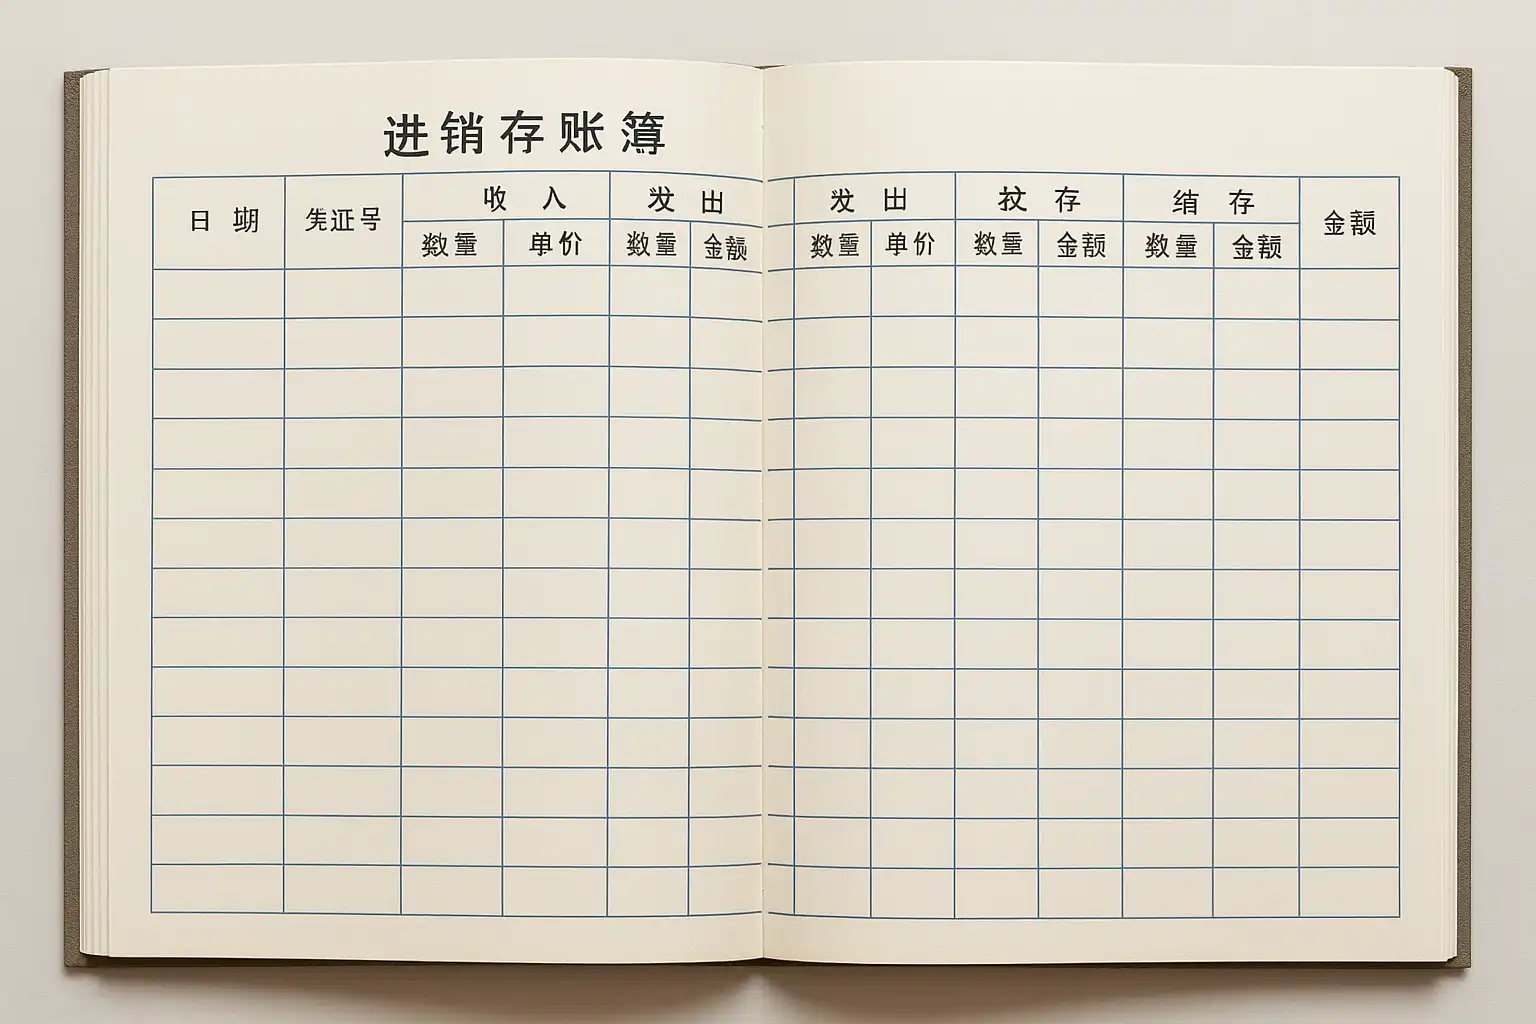 进销存账簿
日期 凭证号 收入 发出 发出 存 结存 金额
数量 单价 数量 金额 数量 单价 数量 金额 数量 金额